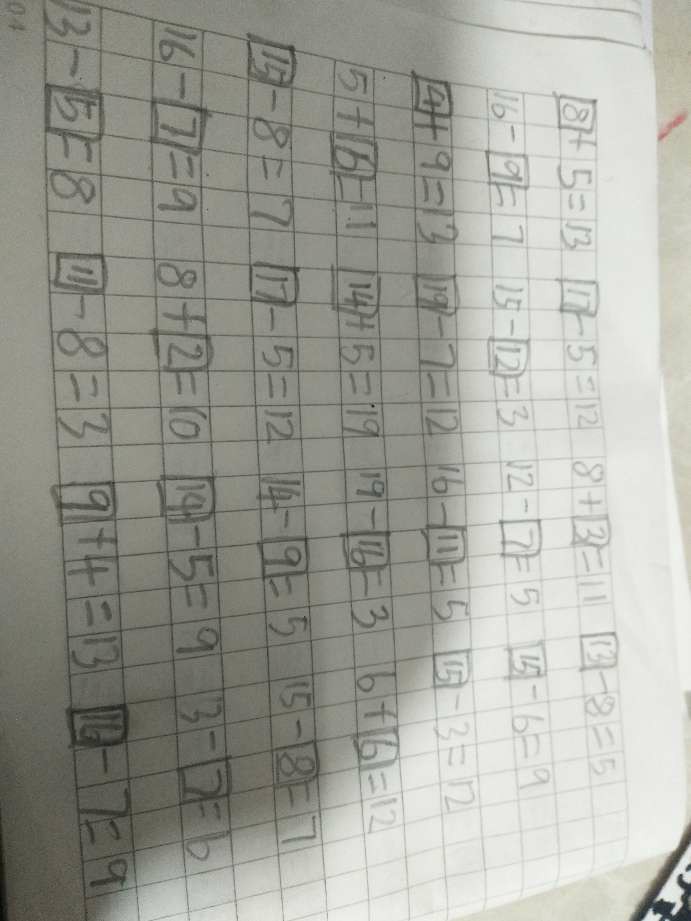 8+5=13 17-5=12 8+3=11 13-8=5
16-9=7 15-12=3 12-7=5 15-6=9
4+9=13 19-7=12 16-11=5 15-3=12
5+6=11 14+5=19 19-16=3 6+6=12
15-8=7 17-5=12 14-9=5 15-8=7
16-7=9 8+2=10 14-5=9 13-7=6
13-5=8 11-8=3 9+4=13 16-7=9